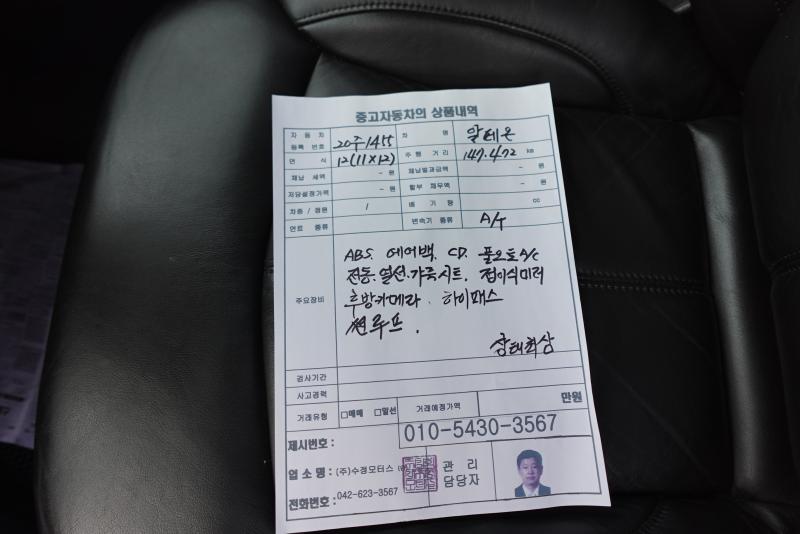 중고자동차의 상품내역
자동차 등록 번호 차 명 알테온
연 식 12(11×12) 주 행 거 리 147.472 km
체납 세액 - 원 체납벌과금액 - 원
저당설정가액 - 원 할부 채무액 - 원
차종 / 정원 / 배 기 량 cc
연료 종류 변속기 종류 A/T
주요장비
ABS. 에어백. CD. 풀오토A/c
전동.열선.가죽시트. 접이식미러
후방카메라. 하이패스
썬루프.
상태최상
검사기간
사고경력
거래유형 □매매 □알선 거래예정가액 만원
제시번호 : 010-5430-3567
업 소 명 : (주)수경모터스 관 리 담당자
전화번호 : 042-623-3567